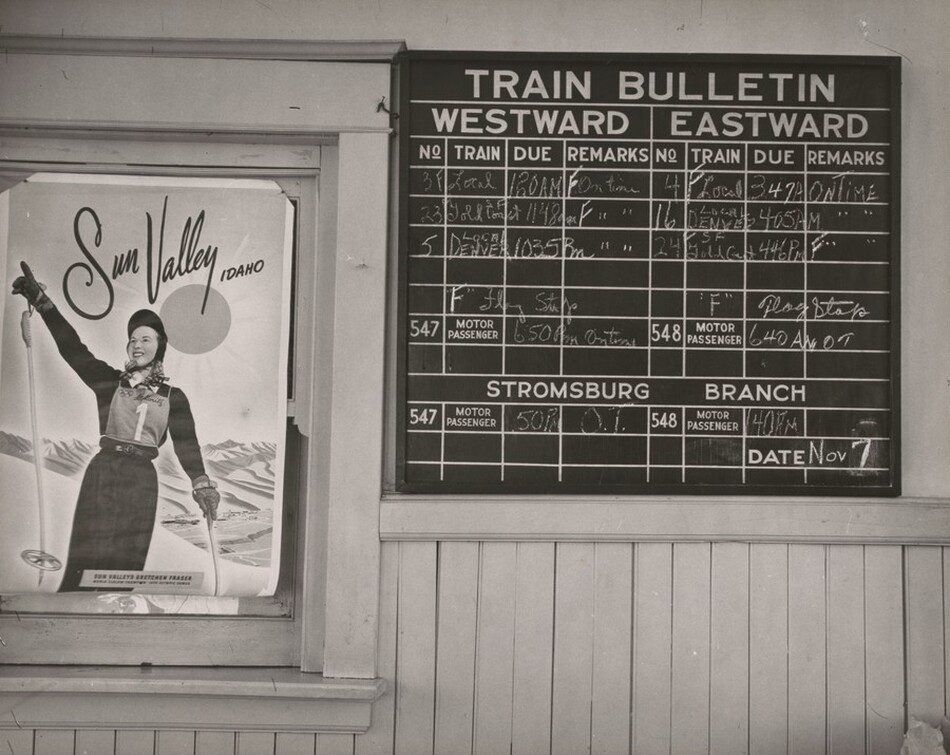 Sun Valley IDAHO
1
SUN VALLEY'S GRETCHEN FRASER
TRAIN BULLETIN
WESTWARD EASTWARD
No TRAIN DUE REMARKS No TRAIN DUE REMARKS
Local 120AM F On time 4 F Local 347A ON TIME
23 Gold Coast 1148am F " " 16 LOCAL DENVER 405AM " "
5 LOCAL DENVER 1035Pm " " 24 S.F. Gold Coast 446PM F " "
"F" Flag Stop "F" Flag Stop
547 MOTOR PASSENGER 650Pm Ontime 548 MOTOR PASSENGER 640AM OT
STROMSBURG BRANCH
547 MOTOR PASSENGER O.T. 548 MOTOR PASSENGER 140PM
DATE Nov 7